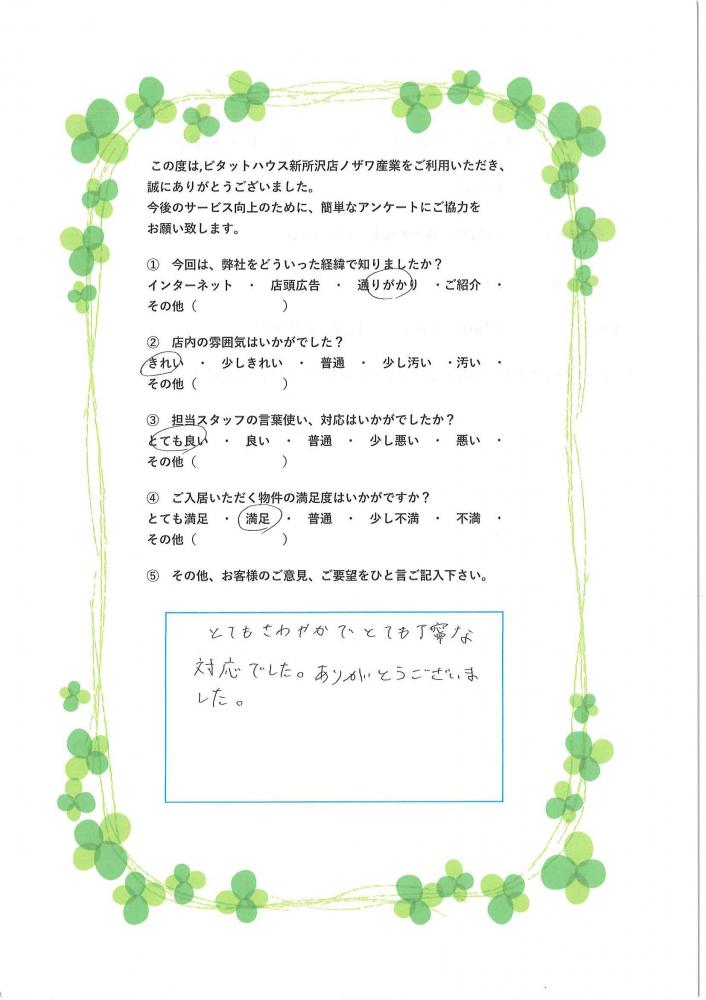 この度は,ピタットハウス新所沢店ノザワ産業をご利用いただき、
誠にありがとうございました。
今後のサービス向上のために、簡単なアンケートにご協力を
お願い致します。
① 今回は、弊社をどういった経緯で知りましたか？
インターネット ・ 店頭広告 ・ 通りがかり ・ご紹介 ・
その他（ ）
② 店内の雰囲気はいかがでした？
きれい ・ 少しきれい ・ 普通 ・ 少し汚い ・汚い ・
その他（ ）
③ 担当スタッフの言葉使い、対応はいかがでしたか？
とても良い ・ 良い ・ 普通 ・ 少し悪い ・ 悪い ・
その他（ ）
④ ご入居いただく物件の満足度はいかがですか？
とても満足 ・ 満足 ・ 普通 ・ 少し不満 ・ 不満 ・
その他（ ）
⑤ その他、お客様のご意見、ご要望をひと言ご記入下さい。
とてもさわやかでとても丁寧な
対応でした。ありがとうございま
した。